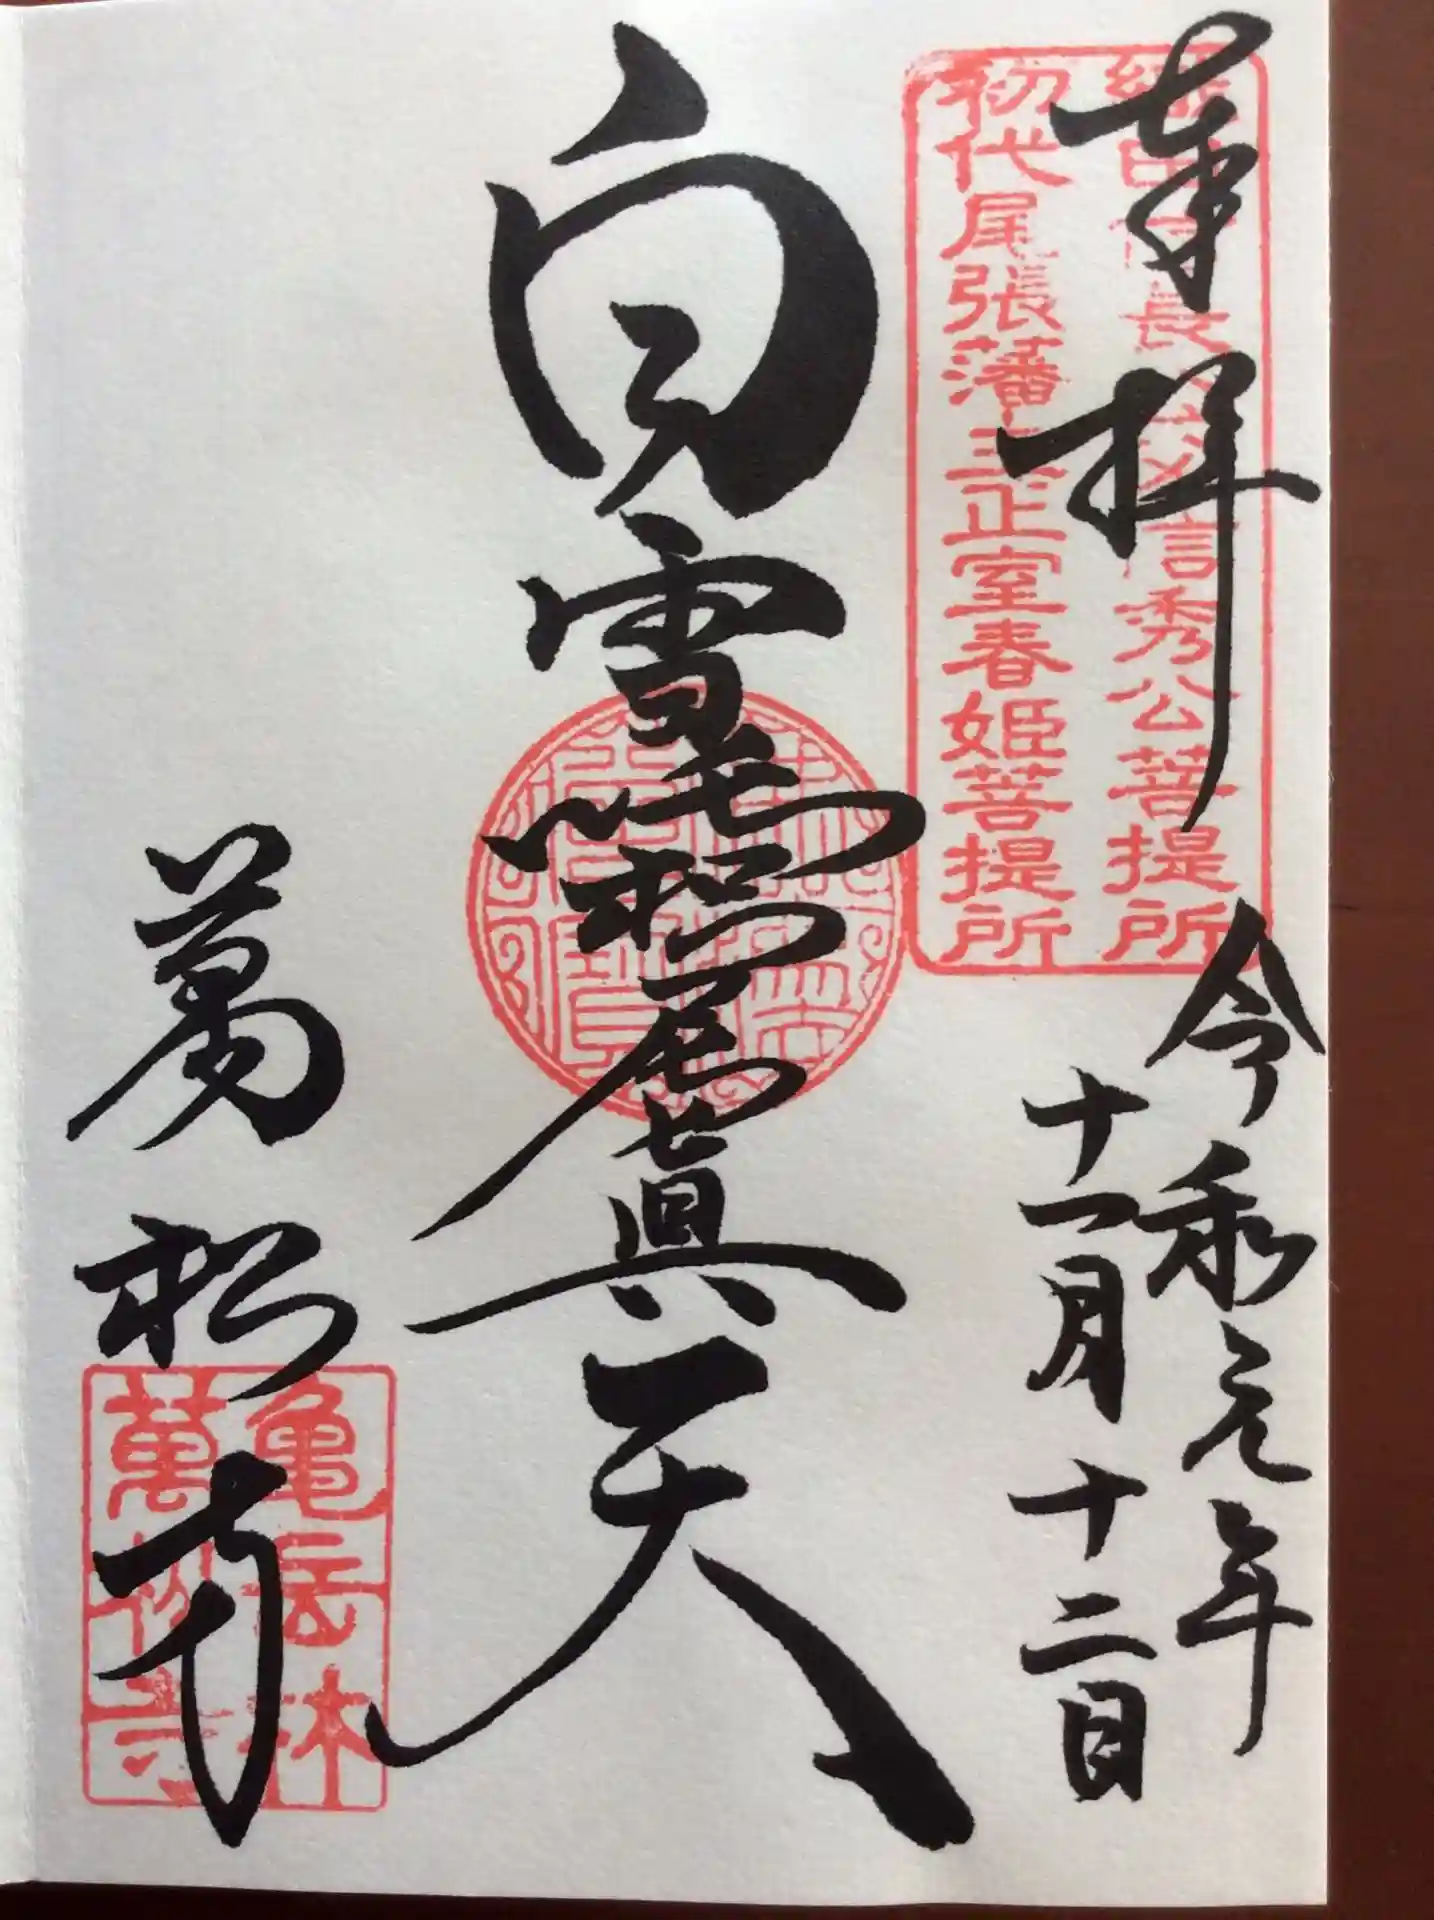 奉拝
織田信長父信秀公菩提所
初代尾張藩主正室春姫菩提所
令和元年
十一月十二日
白雪稲荷眞天
萬松寺
亀岳林
萬松寺